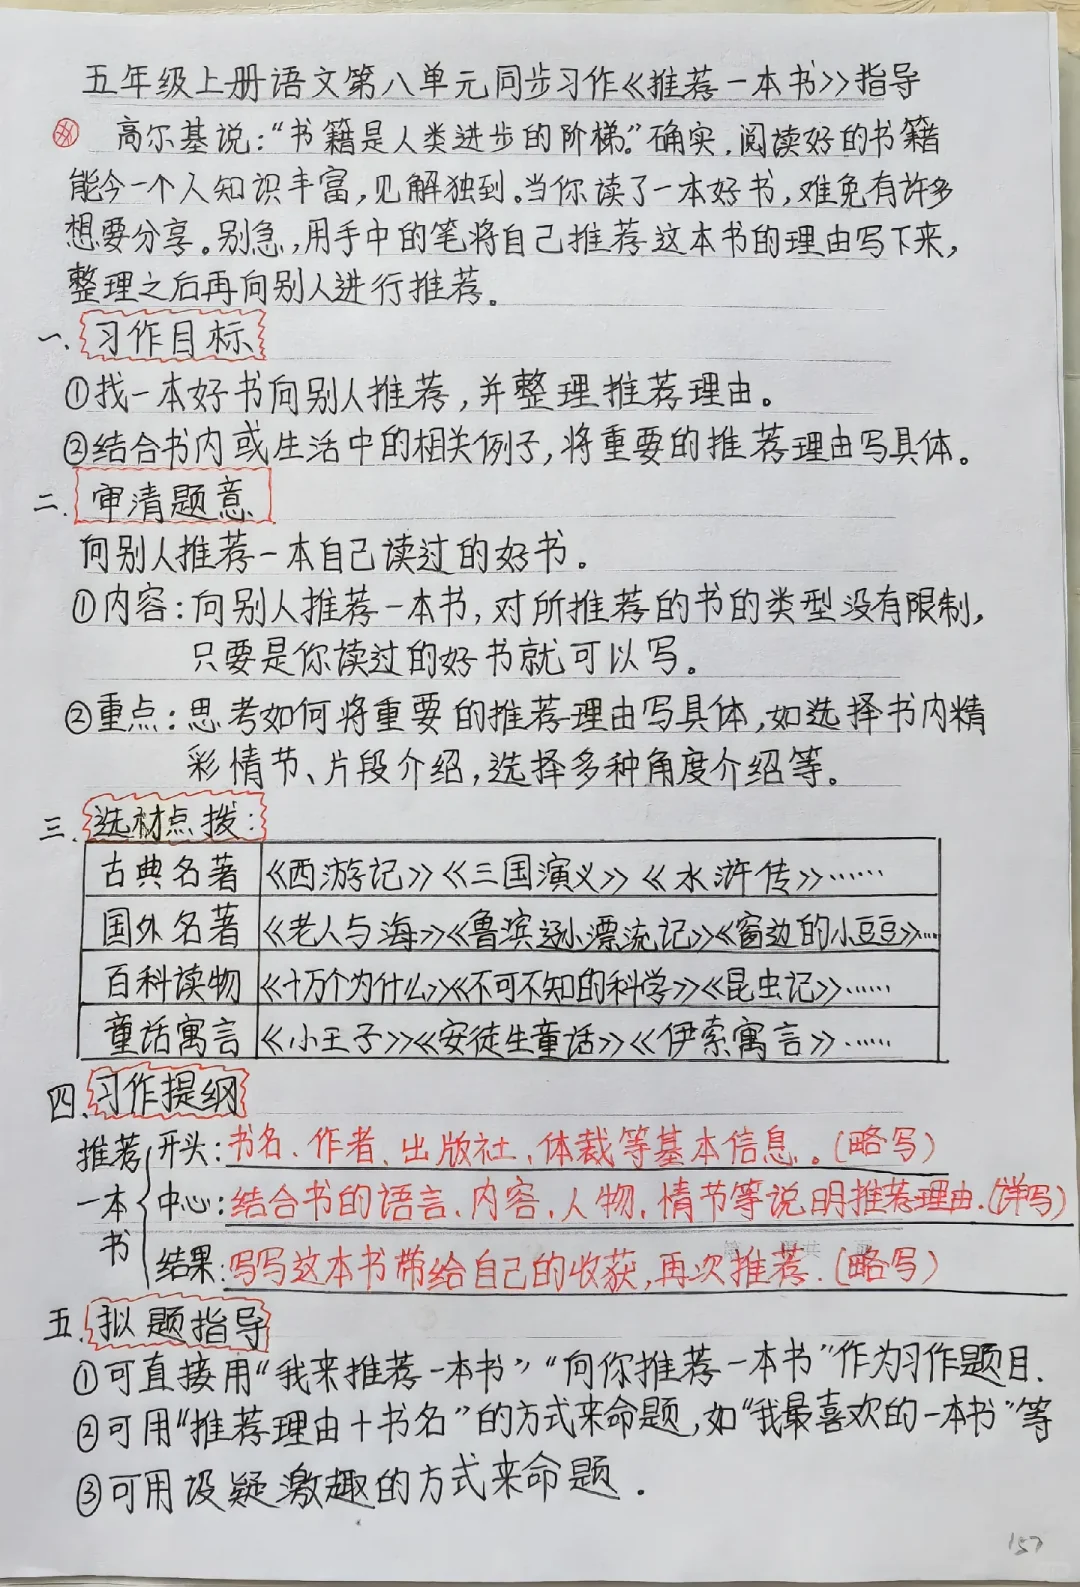 五年级上册语文第八单元同步习作《推荐一本书》指导
高尔基说：“书籍是人类进步的阶梯。”确实，阅读好的书籍
能令一个人知识丰富，见解独到。当你读了一本好书，难免有许多
想要分享。别急，用手中的笔将自己推荐这本书的理由写下来，
整理之后再向别人进行推荐。
一、习作目标
①找一本好书向别人推荐，并整理推荐理由。
②结合书内或生活中的相关例子，将重要的推荐理由写具体。
二、审清题意
向别人推荐一本自己读过的好书。
①内容：向别人推荐一本书，对所推荐的书的类型没有限制，
只要是你读过的好书就可以写。
②重点：思考如何将重要的推荐理由写具体，如选择书内精
彩情节、片段介绍，选择多种角度介绍等。
三、选材点拨：
古典名著 《西游记》《三国演义》《水浒传》……
国外名著 《老人与海》《鲁滨逊漂流记》《窗边的小豆豆》…
百科读物 《十万个为什么》《不可不知的科学》《昆虫记》……
童话寓言 《小王子》《安徒生童话》《伊索寓言》……
四、习作提纲
推荐一本书
开头：书名、作者、出版社、体裁等基本信息。（略写）
中心：结合书的语言、内容、人物、情节等说明推荐理由.（详写）
结果：写写这本书带给自己的收获，再次推荐.（略写）
五、拟题指导
①可直接用“我来推荐一本书”“向你推荐一本书”作为习作题目.
②可用“推荐理由+书名”的方式来命题，如“我最喜欢的一本书”等
③可用设疑激趣的方式来命题.
157